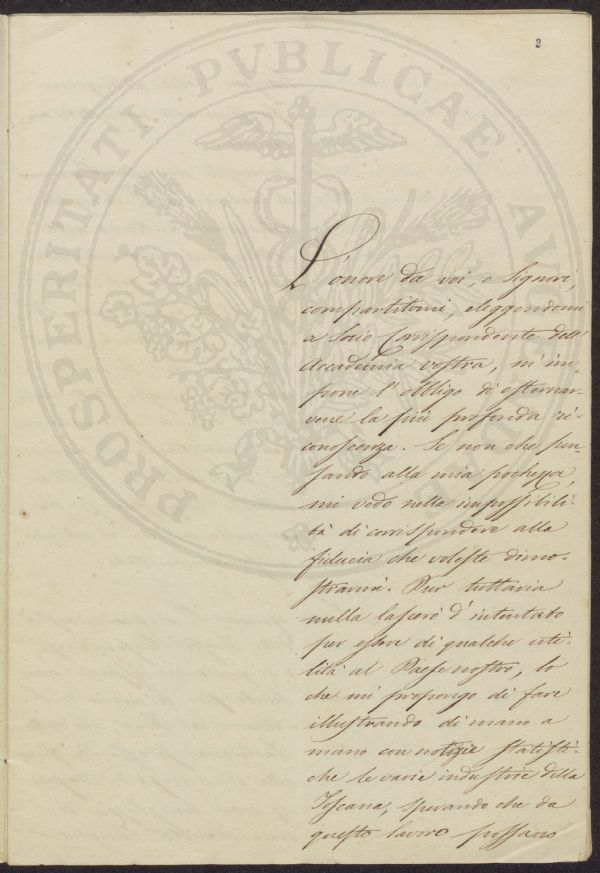 2
PROSPERITATI PVBLICAE AV
L'onore da voi, o Signori,
compartitomi, eleggendomi
a Socio Corrispondente dell'
Accademia vostra, m'im-
pone l'obbligo di esternar-
vene la più profonda ri-
conoscenza. Se non che pen-
sando alla mia pochezza,
mi vedo nella impossibili-
tà di corrispondere alla
fiducia che voleste dimo-
strarmi. Pur tuttavia
nulla lascerò d'intentato
per essere di qualche uti-
lità al Paese nostro, lo
che mi propongo di fare
illustrando di mano a
mano con notizie statisti-
che le varie industrie della
Toscana, sperando che da
questo lavoro possano